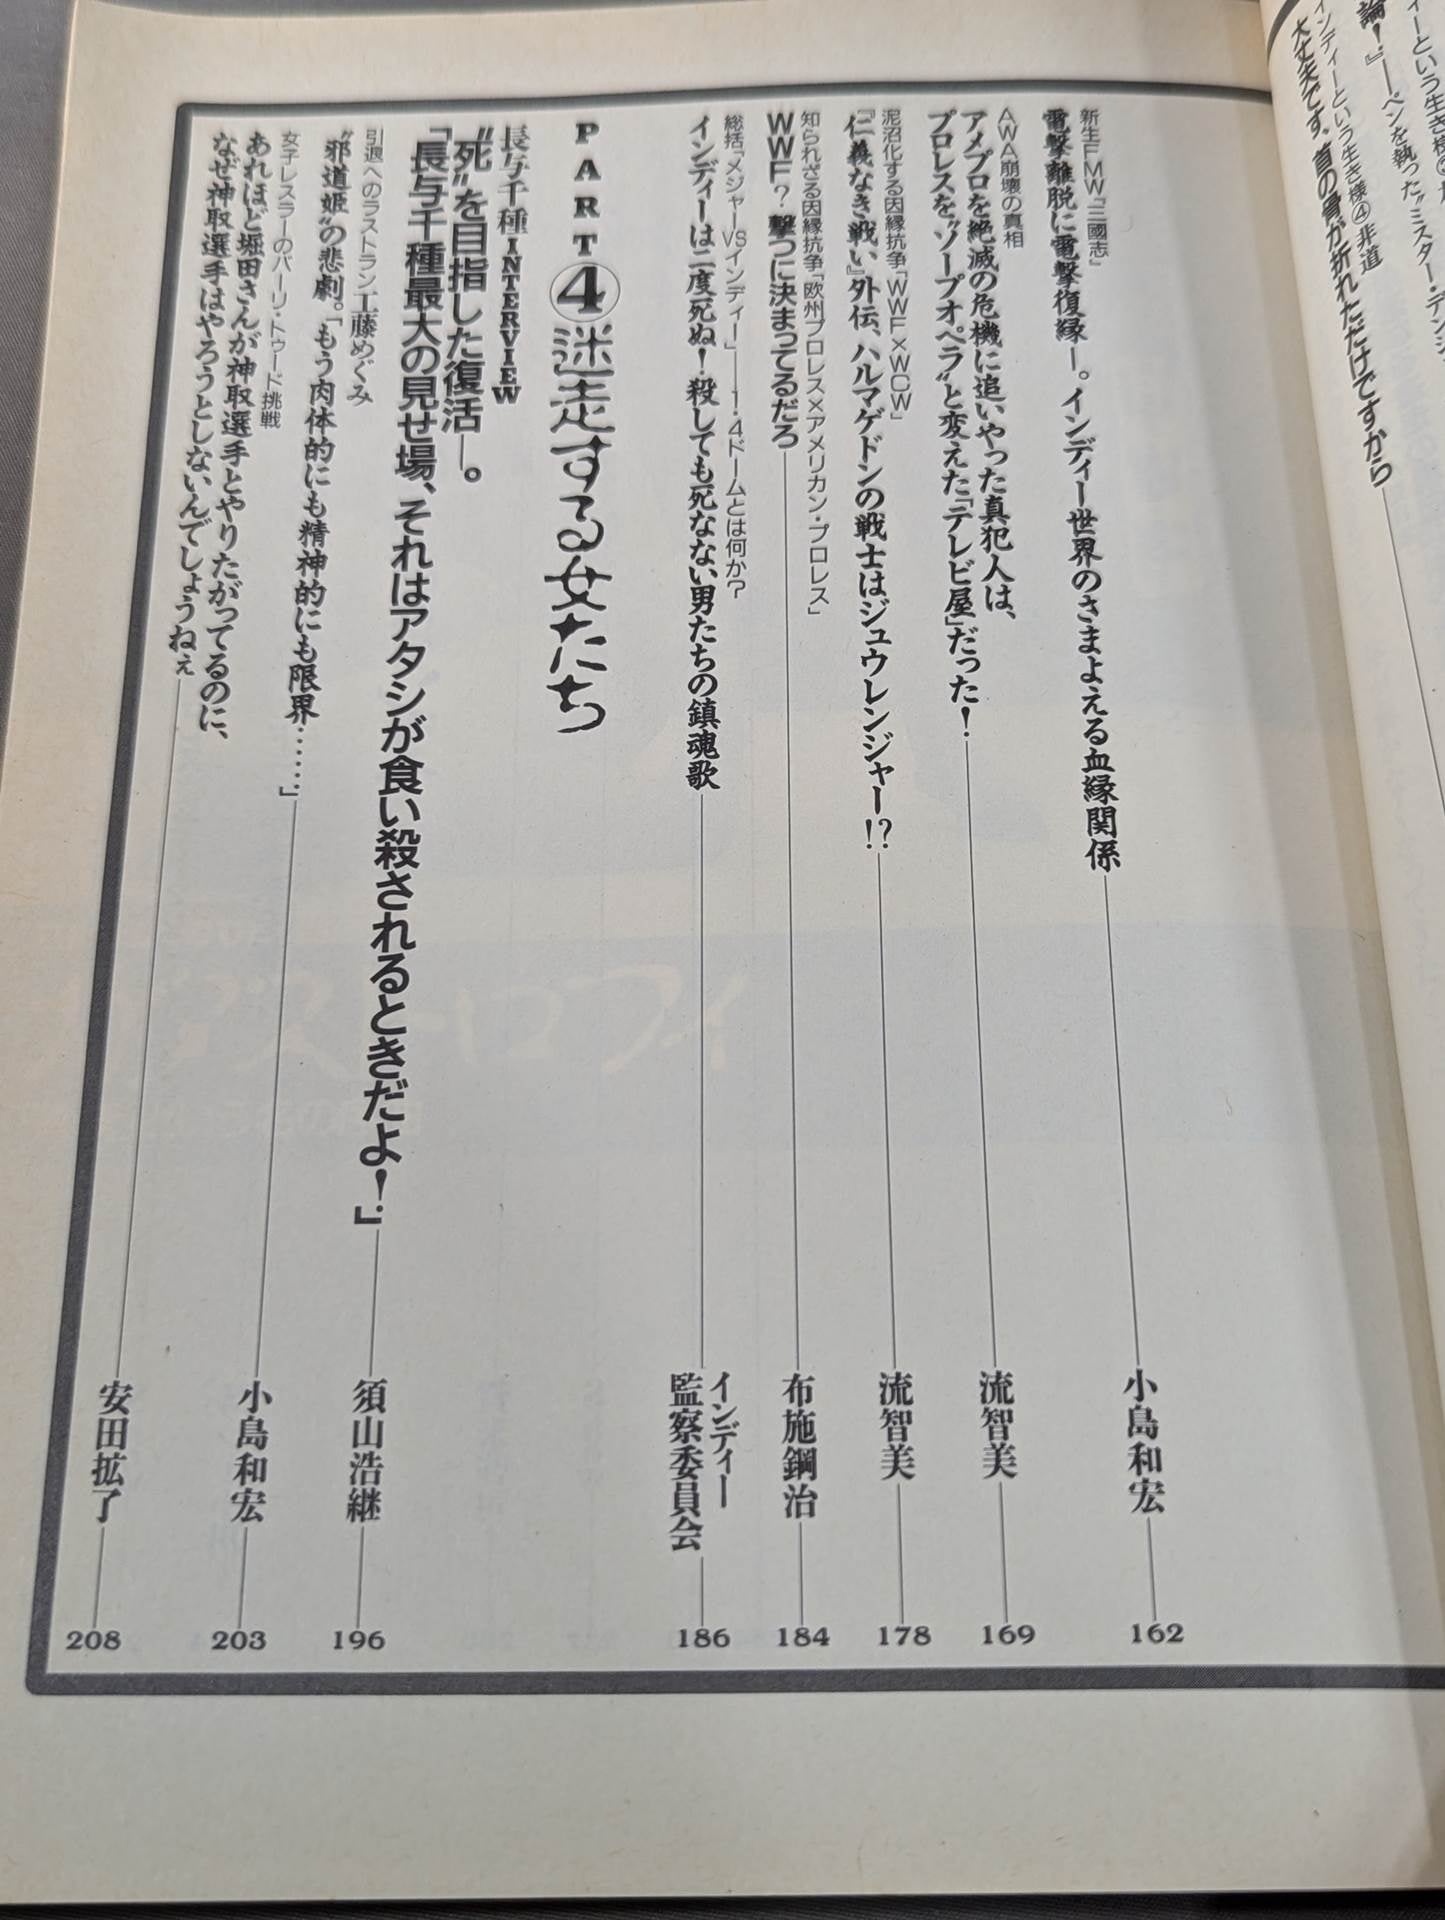 論！』――ペンを執った“ミスター・デンジ
インディーという生き様④非道
大丈夫です。首の骨が折れただけですから
新生FMW「三國志」
電撃離脱に電撃復縁――。インディー世界のさまよえる血縁関係
小島和宏
162
AWA崩壊の真相
アメプロを絶滅の危機に追いやった真犯人は、
プロレスを“ソープオペラ”と変えた「テレビ屋」だった！
流智美
169
泥沼化する因縁抗争「WWF×WCW」
『仁義なき戦い』外伝、ハルマゲドンの戦士はジュウレンジャー!?
流智美
178
知られざる因縁抗争「欧州プロレス×アメリカン・プロレス」
WWF？ 撃つに決まってるだろ
布施鋼治
184
総括「メジャーVSインディー」――1・4ドームとは何か？
インディーは二度死ぬ！ 殺しても死なない男たちの鎮魂歌
インディー
監察委員会
186
PART④迷走する女たち
長与千種INTERVIEW
“死”を目指した復活――。
「長与千種最大の見せ場、それはアタシが食い殺されるときだよ！」
須山浩継
196
引退へのラストラン工藤めぐみ
“邪道姫”の悲劇。「もう肉体的にも精神的にも限界……」
小島和宏
203
女子レスラーのバーリ・トゥード挑戦
あれほど堀田さんが神取選手とやりたがってるのに、
なぜ神取選手はやろうとしないんでしょうねぇ
安田拡了
208